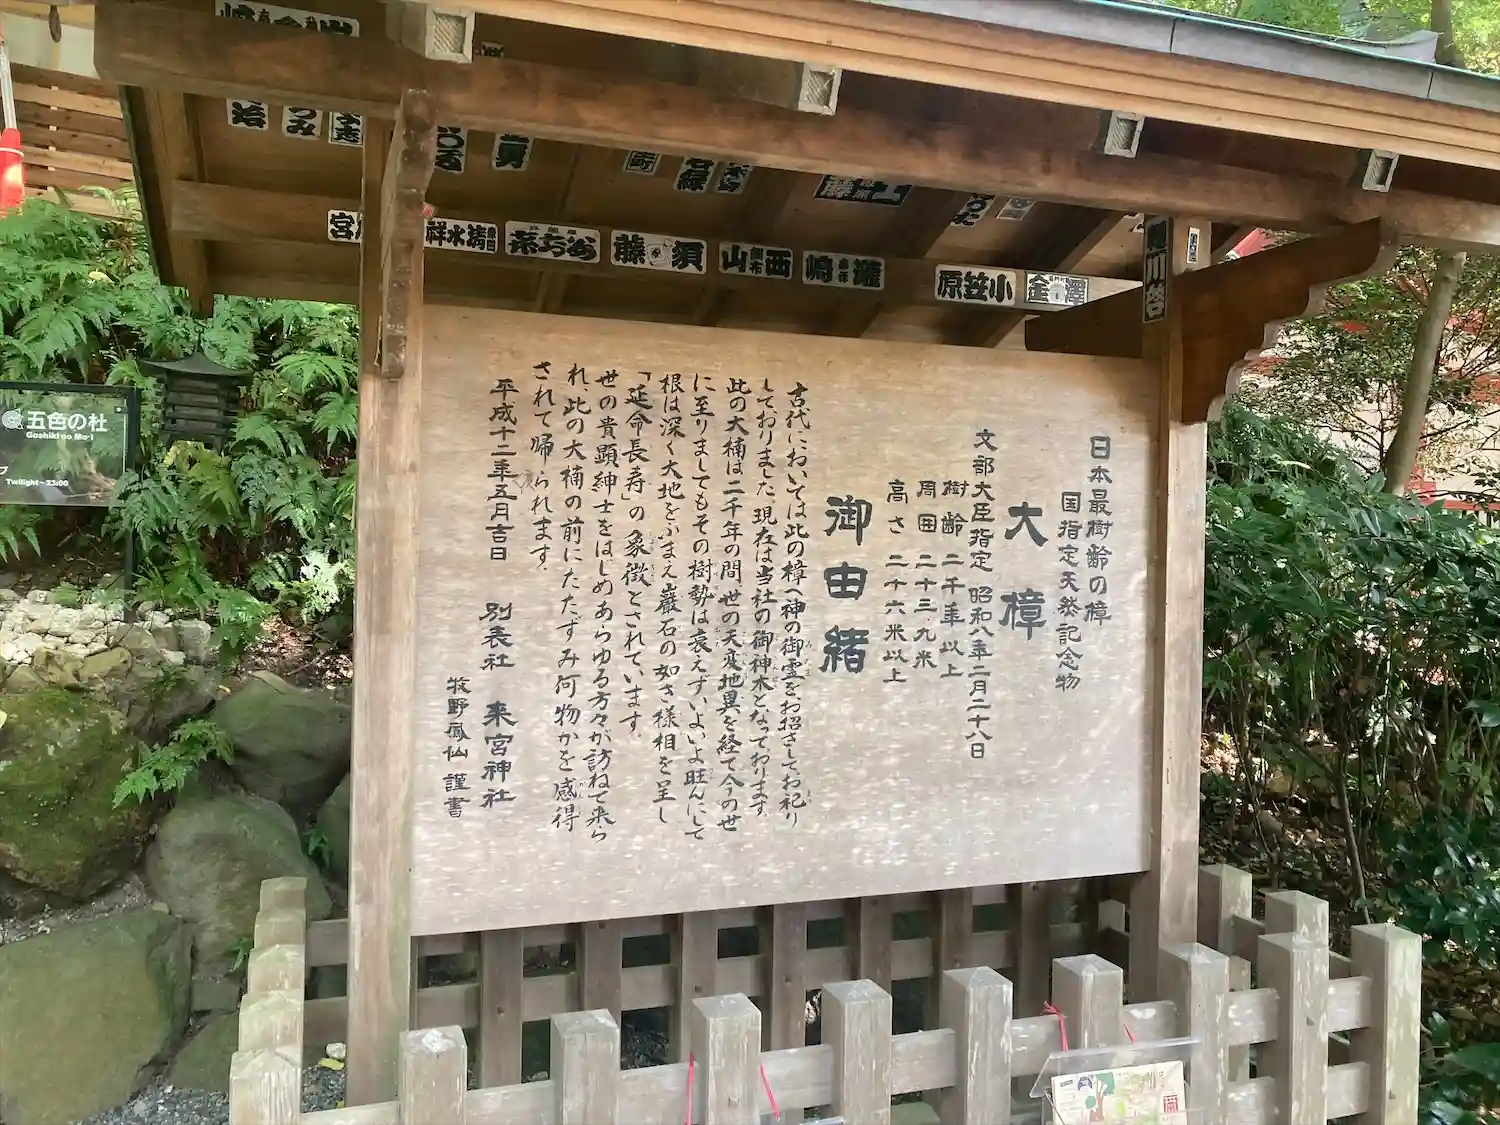 日本最樹齢の樟
国指定天然記念物
大樟
文部大臣指定 昭和八年二月二十八日
樹齢 二千年以上
周囲 二十三.九米
高さ 二十六米以上
御由緒
古代においては此の樟へ神の御霊をお招きしてお祀り
しておりました 現在は当社の御神木となっております
此の大楠は二千年の間一世の天変地異を経て今の世
に至りましてもその樹勢は衰えずいよいよ旺んにして
根は深く大地をふまえ巖石の如き様相を呈し
「延命長寿」の象徴とされています
世の貴顕紳士をはじめあらゆる方々が訪ねて来ら
れ、此の大楠の前にたたずみ何物かを感得
されて帰られます
平成十二年五月吉日
別表社 来宮神社
牧野鳳仙 謹書
五色の杜
Goshiki no Mori
Twilight~23:00
清水祥
須藤
西山
小笠原
金澤